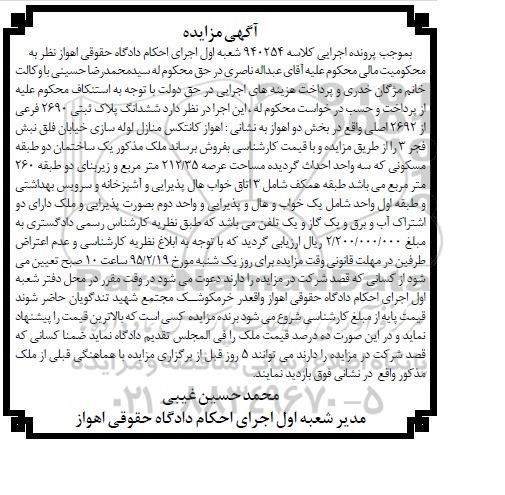 آگهی مزایده
بموجب پرونده اجرایی کلاسه ۹۴۰۲۵۴ شعبه اول اجرای احکام دادگاه حقوقی اهواز نظر به
محکومیت مالی محکوم علیه آقای عبداله ناصری در حق محکوم له سیدمحمدرضا حسینی با وکالت
خانم مژگان خدری و پرداخت هزینه های اجرایی در حق دولت با توجه به استنکاف محکوم علیه
از پرداخت و حسب در خواست محکوم له ، این اجرا در نظر دارد ششدانگ پلاک ثبتی ۲۶۹۰ فرعی
از ۲۶۹۲ اصلی واقع در بخش دو اهواز به نشانی : اهواز کانتکس منازل لوله سازی خیابان فلق نبش
فجر ۳ را از طریق مزایده و با قیمت کارشناسی بفروش برساند ملک مذکور یک ساختمان دو طبقه
مسکونی که سه واحد احداث گردیده مساحت عرصه ۲۱۲/۳۵ متر مربع و زیربنای دو طبقه ۲۶۰
متر مربع می باشد طبقه همکف شامل ۳ اتاق خواب هال پذیرایی و آشپزخانه و سرویس بهداشتی
و طبقه اول واحد شامل یک خواب و هال و پذیرایی و واحد دوم بصورت پذیرایی و ملک دارای دو
اشتراک آب و برق و یک گاز و یک تلفن می باشد که طبق نظریه کارشناس رسمی دادگستری به
مبلغ ۲/۲۰۰/۰۰۰/۰۰۰ ریال ارزیابی گردید که با توجه به ابلاغ نظریه کارشناسی و عدم اعتراض
طرفین در مهلت قانونی وقت مزایده برای روز یک شنبه مورخ ۹۵/۲/۱۹ ساعت ۱۰ صبح تعیین می
شود از کسانی که قصد شرکت در مزایده را دارند دعوت می شود در وقت مقرر در محل دفتر شعبه
اول اجرای احکام دادگاه حقوقی اهواز واقعدر خرمکوشک مجتمع شهید تندگویان حاضر شوند
قیمت پایه از مبلغ کارشناسی شروع می شود برنده مزایده کسی است که بالاترین قیمت را پیشنهاد
نماید و در این صورت ده درصد قیمت ملک را فی المجلس تقدیم دادگاه نماید ضمنا کسانی که
قصد شرکت در مزایده را دارند می توانند ۵ روز قبل از برگزاری مزایده با هماهنگی قبلی از ملک
مذکور واقع در نشانی فوق بازدید نمایند.
محمدحسین غیبی
مدیر شعبه اول اجرای احکام دادگاه حقوقی اهواز
۰۲۱-۸۸۳۴۹۶۷۰-۵